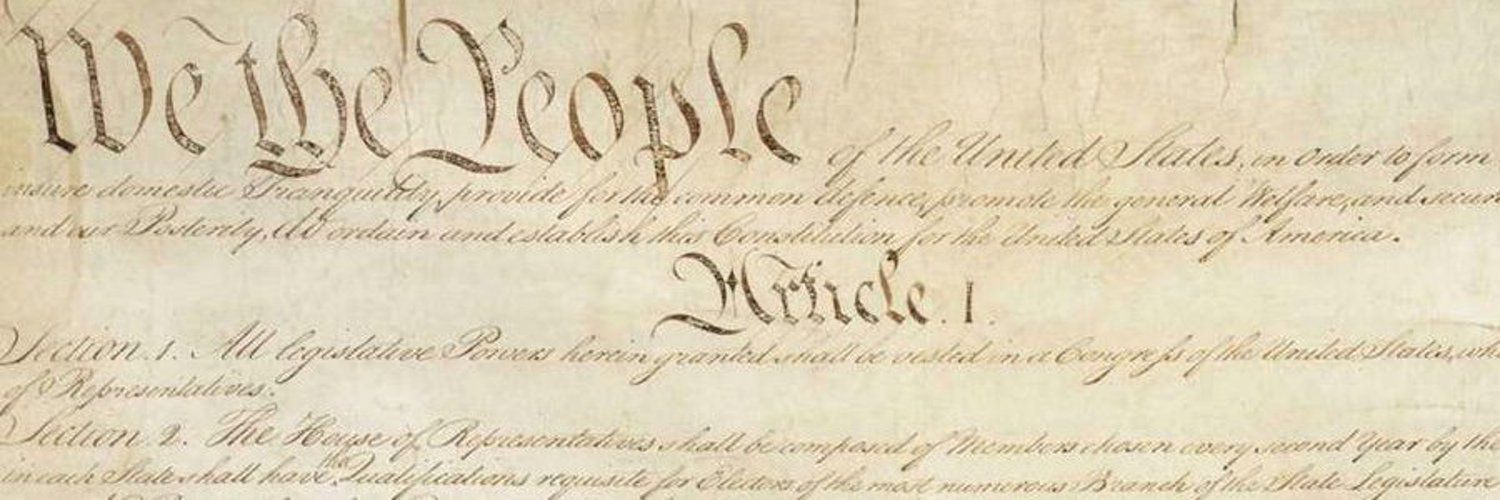 We the People of the United States, in Order to form
insure domestic Tranquility, provide for the common defence, promote the general Welfare, and secure
and our Posterity, do ordain and establish this Constitution for the United States of America.
Article. I.
Section. 1. All legislative Powers herein granted shall be vested in a Congress of the United States, wh
of Representatives.
Section. 2. The House of Representatives shall be composed of Members chosen every second Year by the
in each State shall have the Qualifications requisite for Electors of the most numerous Branch of the State Legislature